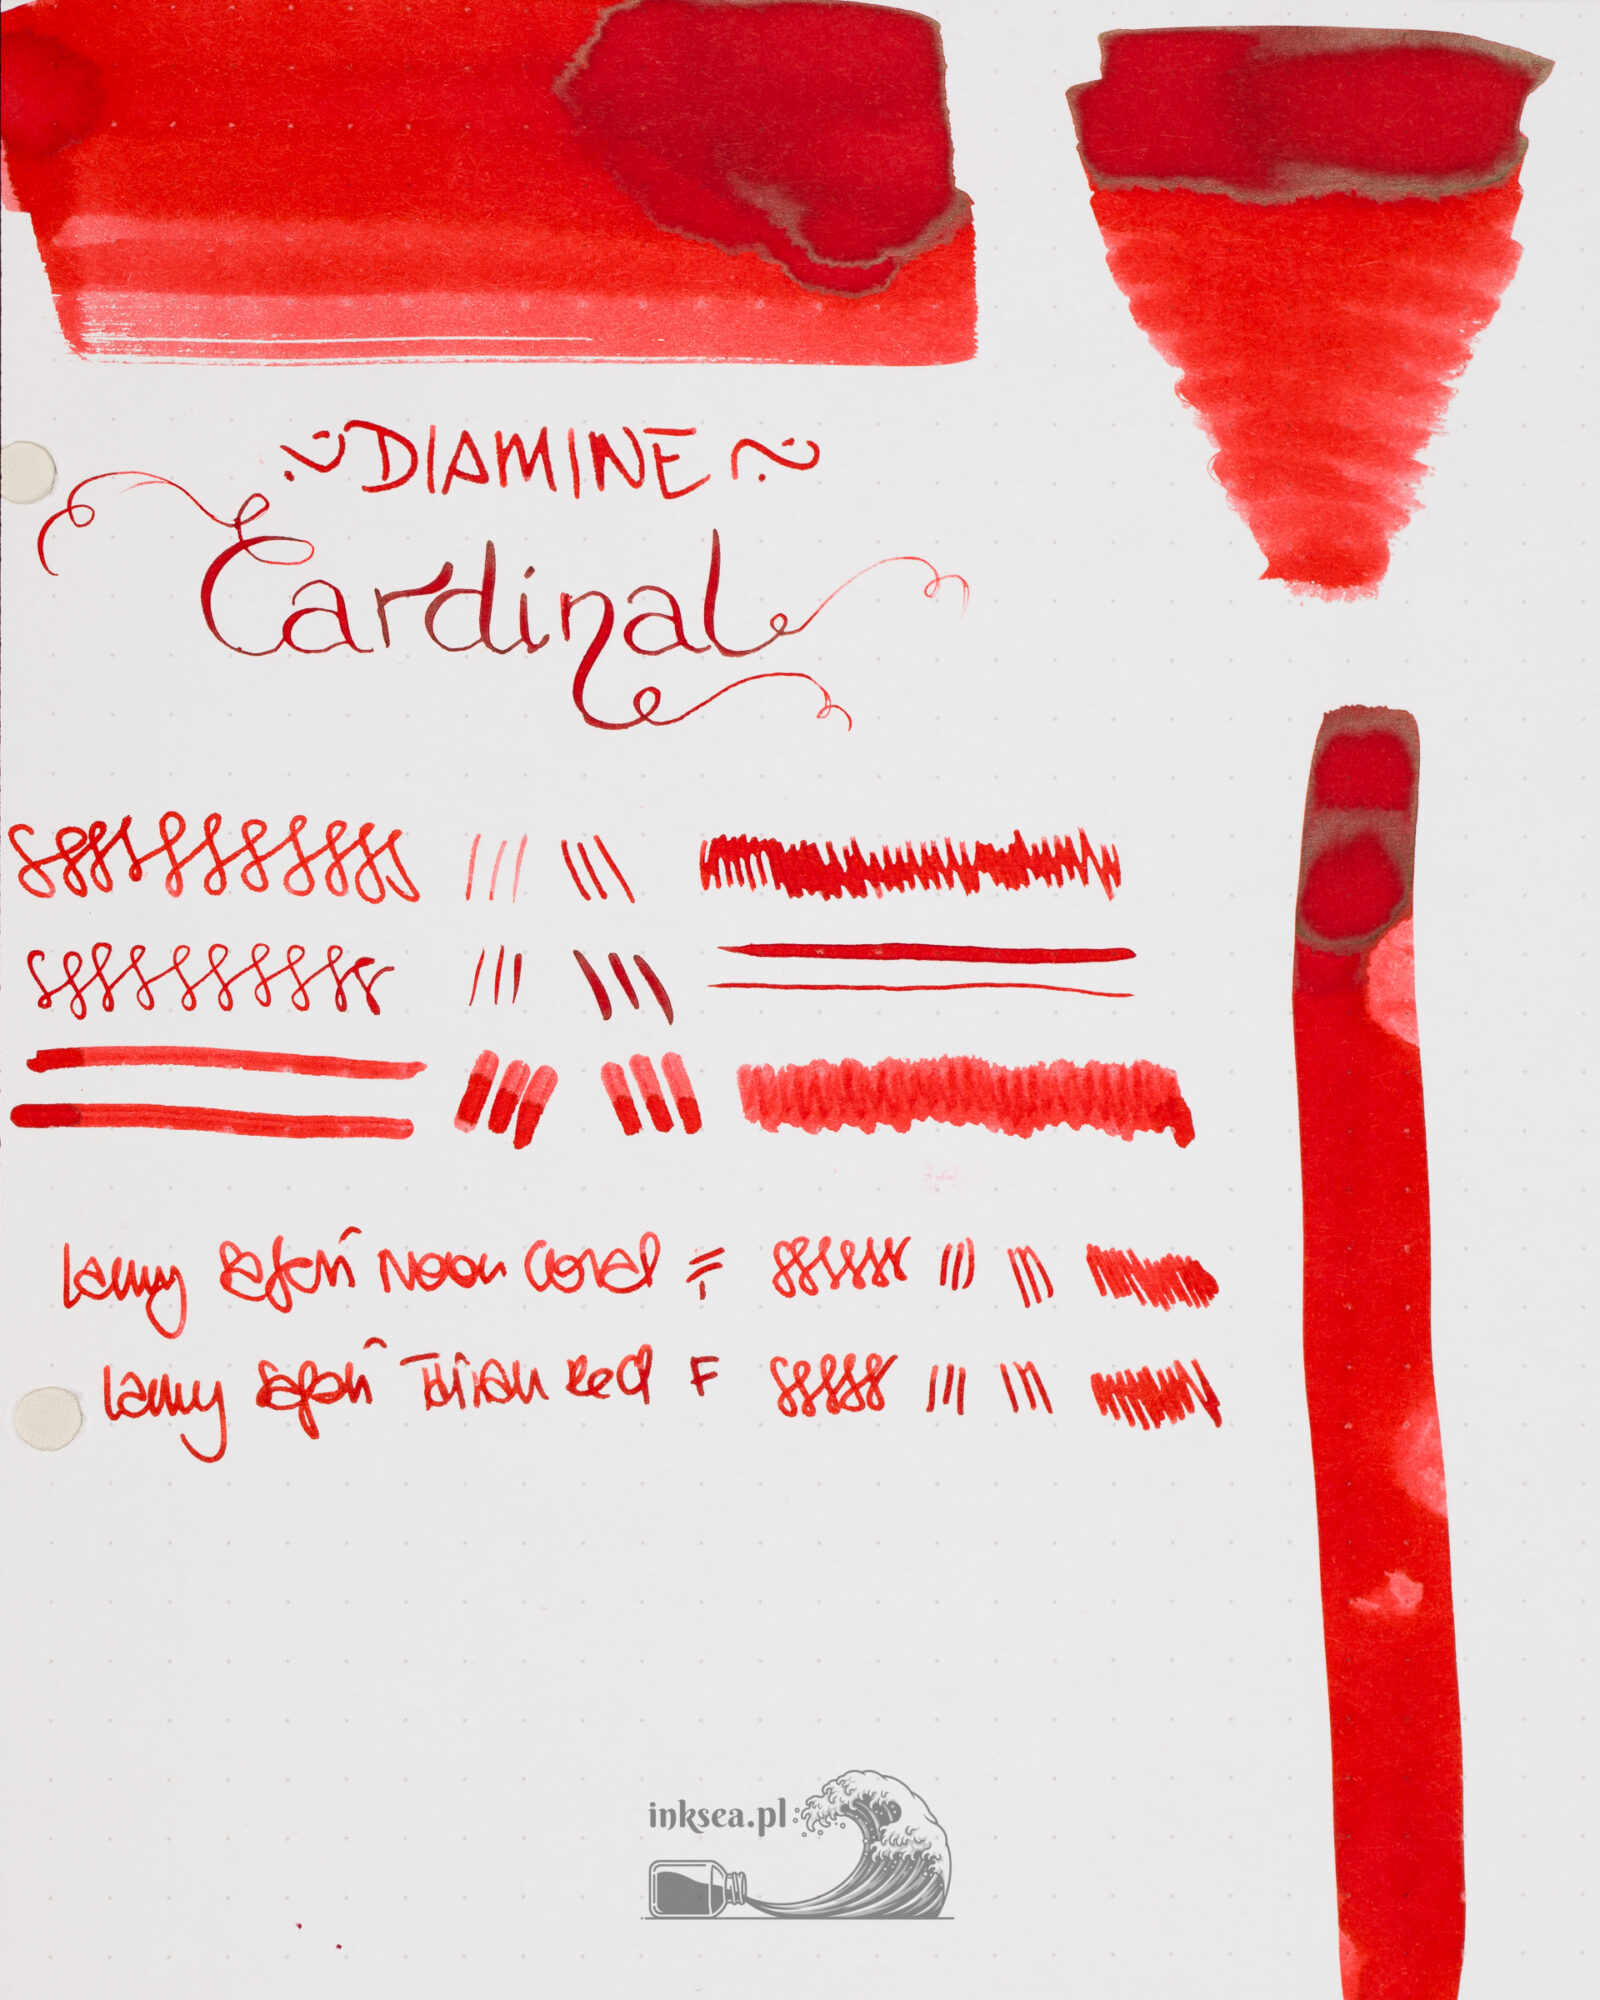 DIAMINE
Cardinal
Lamy Safari Neon Coral F
Lamy Safari Red F
inksea.pl